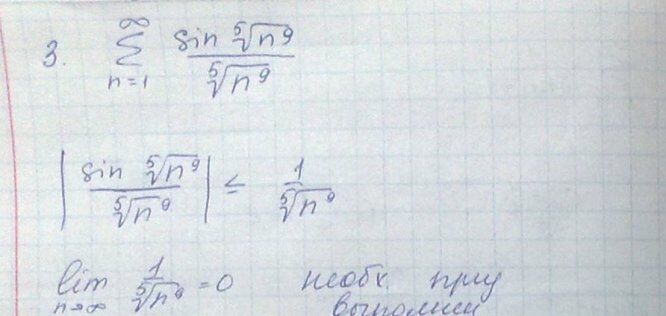 3. ∞ ∑ n=1 sin ⁵√n⁹ / ⁵√n⁹
|sin ⁵√n⁹ / ⁵√n⁹| ≤ 1 / ⁵√n⁹
lim n→∞ 1 / ⁵√n⁹ = 0 необх. приз
выполнен